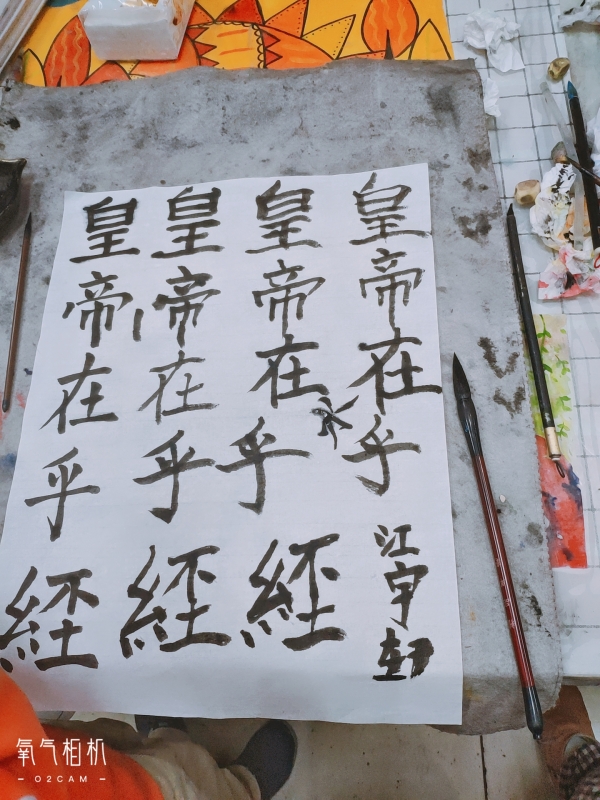 皇帝在乎
江宇轩
皇帝在乎経
皇帝在乎経
皇帝在乎経
氧气相机
– O2CAM –